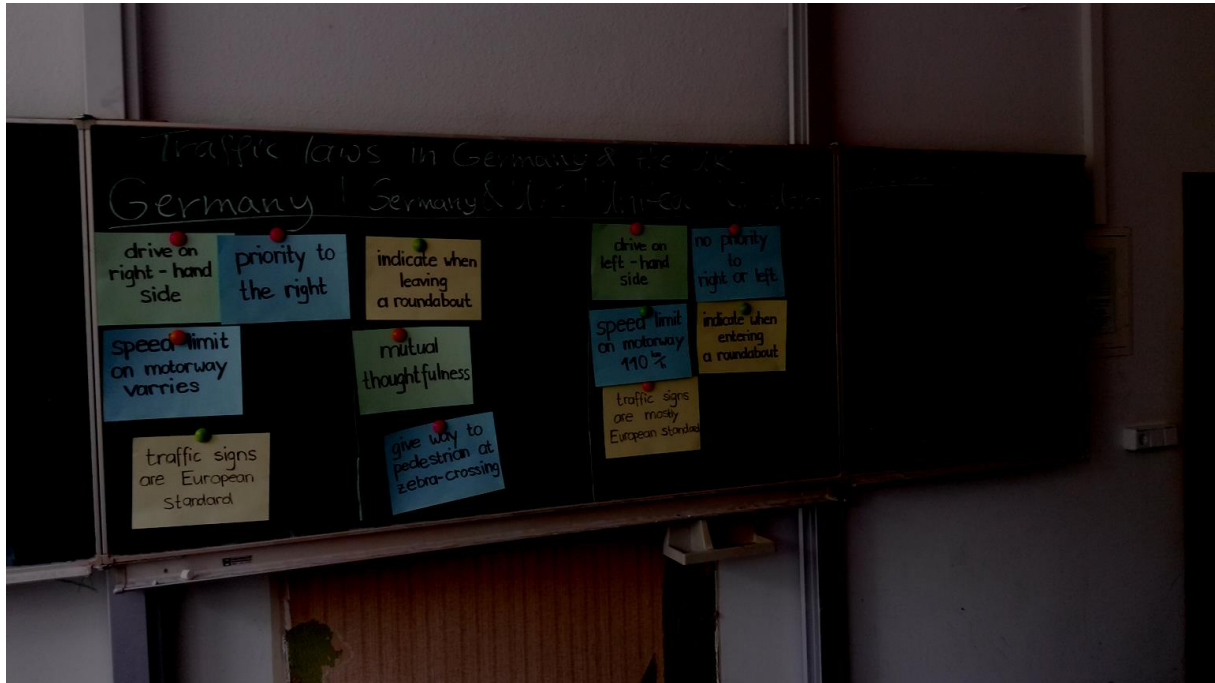 Traffic laws in Germany & the UK
Germany
Germany & UK
drive on
right-hand
side
priority to
the right
speed limit
on motorway
varries
traffic signs
are European
standard
indicate when
leaving
a roundabout
mutual
thoughtfulness
give way to
pedestrian at
zebra-crossing
drive on
left-hand
side
no priority
to
right or left
speed limit
on motorway
110 km/h
indicate when
entering
a roundabout
traffic signs
are mostly
European standard